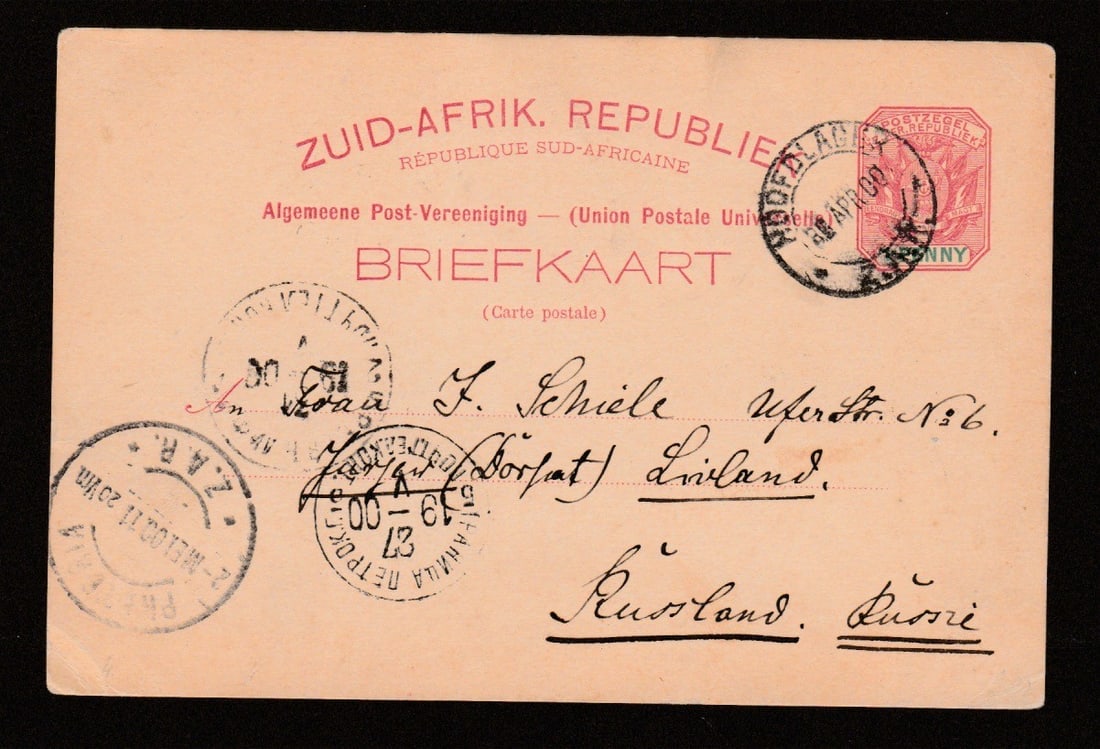 ZUID-AFRIK. REPUBLIEK
RÉPUBLIQUE SUD-AFRICAINE
Algemeene Post-Vereeniging — (Union Postale Universelle)
BRIEFKAART
(Carte postale)
POSTZEGEL
AFR. REPUBLIEK
PENNY
HOOFDLAGER
APR 00
Z.A.R.
An Frau J. Schiele Ufer Str. No 6.
Jurjew (Dorpat) Livland.
Russland. Russie
PRETORIA Z.A.R.
2-MEI.00.11 20 Vm
19 00
27
V
19 — 00
ГРАНИЦА ПЕТРОК.